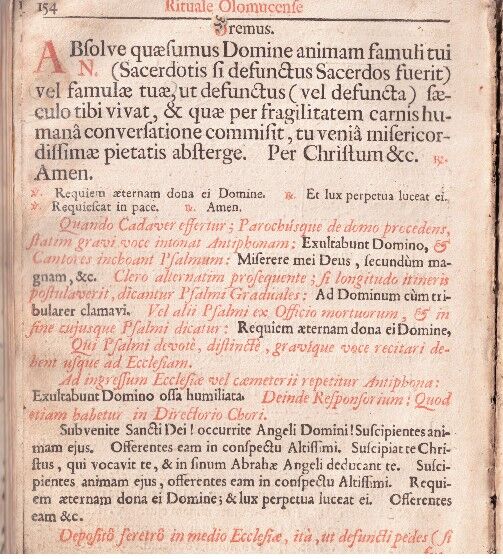 154 Rituale Olomucense
Oremus.
ABſolve quæſumus Domine animam famuli tui
N. (Sacerdotis ſi defunctus Sacerdos fuerit)
vel famulæ tuæ, ut defunctus (vel defuncta) ſæ-
culo tibi vivat, & quæ per fragilitatem carnis hu-
manâ converſatione commiſit, tu veniâ miſericor-
diſſimæ pietatis abſterge. Per Chriſtum &c. ℟.
Amen.
℣. Requiem æternam dona ei Domine. ℟. Et lux perpetua luceat ei.
℣. Requieſcat in pace. ℟. Amen.
Quando Cadaver effertur; Parochúsque de domo procedens,
ſtatim gravi voce intonat Antiphonam: Exultabunt Domino, &
Cantores inchoant Pſalmum: Miſerere mei Deus, ſecundùm ma-
gnam, &c. Clero alternatim proſequente; ſi longitudo itineris
poſtulaverit, dicantur Pſalmi Graduales: Ad Dominum cùm tri-
bularer clamavi. Vel alii Pſalmi ex Officio mortuorum, & in
fine cujusque Pſalmi dicatur: Requiem æternam dona ei Domine,
Qui Pſalmi devotè, diſtinctè, gravíque voce recitari de-
bent usque ad Eccleſiam.
Ad ingreſſum Eccleſiæ vel cæmeterii repetitur Antiphona:
Exultabunt Domino oſſa humiliata. Deinde Reſponſorium; Quod
etiam habetur in Directorio Chori.
Subvenite Sancti Dei! occurrite Angeli Domini! Suſcipientes ani-
mam ejus. Offerentes eam in conſpectu Altiſſimi. Suſcipiat te Chri-
ſtus, qui vocavit te, & in ſinum Abrahæ Angeli deducant te. Suſci-
pientes animam ejus, offerentes eam in conſpectu Altiſſimi. Requi-
em æternam dona ei Domine; & lux perpetua luceat ei. Offerentes
eam &c.
Depoſitô feretrô in medio Eccleſiæ, itá, ut defuncti pedes (ſi